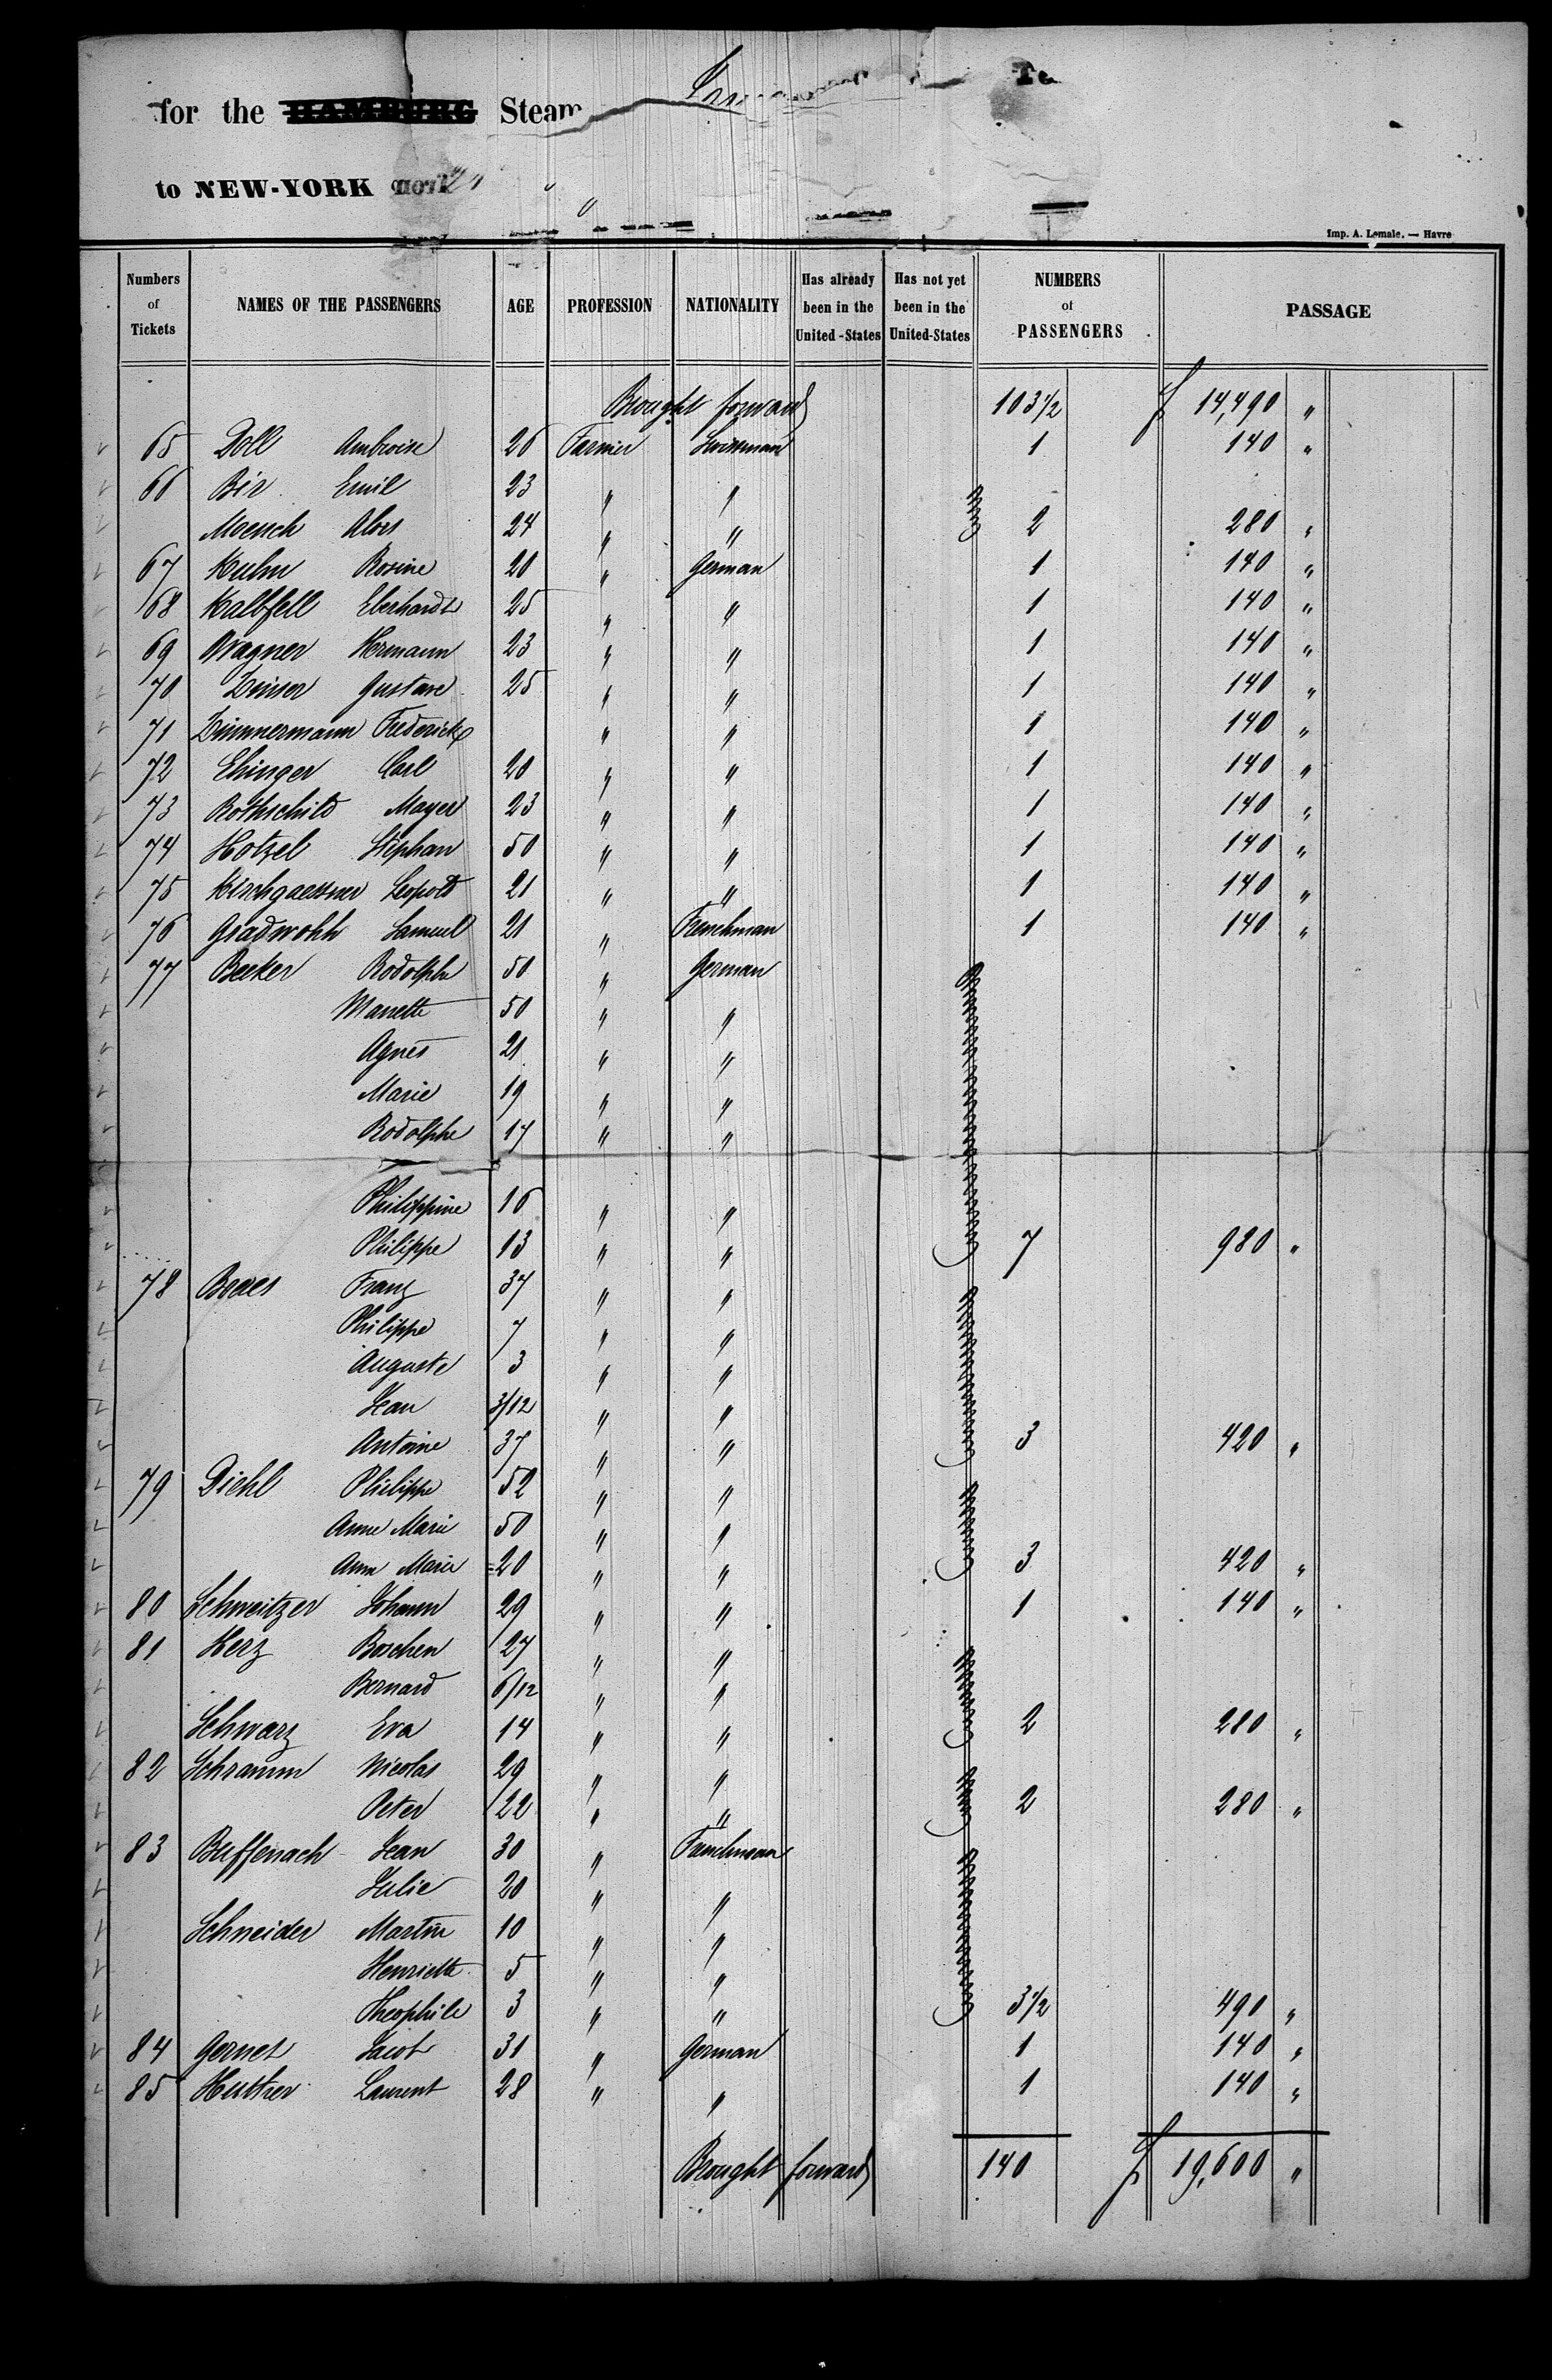 for the HAMBURG Steam
to NEW-YORK
Imp. A. Lemale. — Havre
Numbers of Tickets | NAMES OF THE PASSENGERS | AGE | PROFESSION | NATIONALITY | Has already been in the United-States | Has not yet been in the United-States | NUMBERS of PASSENGERS | PASSAGE
Brought forward 103 1/2 f 14,490 "
65 Doll Ambroise 26 Farmer Swissman 1 140 "
66 Bir Emil 23 " "
Moench Alois 24 " " 2 280 "
67 Kuhn Rosine 20 " German 1 140 "
68 Kalbfell Eberhardt 25 " " 1 140 "
69 Wagner Hermann 23 " " 1 140 "
70 Zinser Gustave 25 " " 1 140 "
71 Zimmermann Frederick " " 1 140 "
72 Ehinger Carl 20 " " 1 140 "
73 Rothschild Mayer 23 " " 1 140 "
74 Hotzel Stephan 50 " " 1 140 "
75 Kirchgaessner Leopold 21 " " 1 140 "
76 Gradwohl Samuel 21 " Frenchman 1 140 "
77 Becker Rodolphe 50 " German
Manette 50 " "
Agnes 21 " "
Marie 19 " "
Rodolphe 17 " "
Philippine 16 " "
Philippe 13 " " 7 980 "
78 Franz 37 " "
Philippe 7 " "
Auguste 3 " "
Jean 3/12 " "
Antoine 37 " " 3 420 "
79 Diehl Philippe 52 " "
Anne Marie 50 " "
Anna Marie 20 " " 3 420 "
80 Schweitzer Johann 29 " " 1 140 "
81 Herz Boschen 27 " "
Bernard 6/12 " "
Schwarz Eva 14 " " 2 280 "
82 Schramm Nicolas 29 " "
Peter 22 " " 2 280 "
83 Buffenach Jean 30 " Frenchman
Julie 20 " "
Schneider Martin 10 " "
Henriette 5 " "
Theophile 3 " " 3 1/2 490 "
84 Gernet Jacob 31 " German 1 140 "
85 Huther Laurent 28 " " 1 140 "
Brought forward 140 f 19,600 "